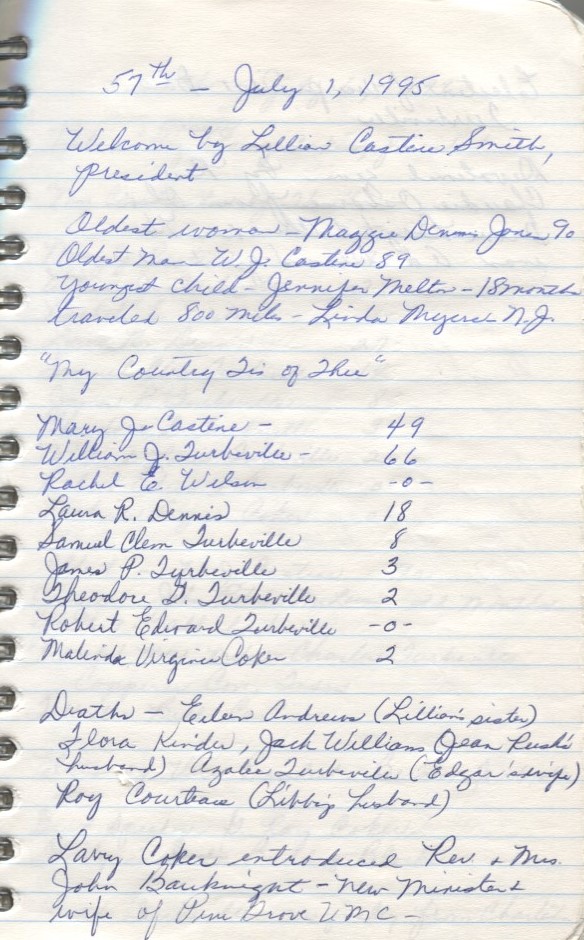 57th - July 1, 1995
Welcome by Lillian Castine Smith,
president
Oldest woman - Maggie Dennis Jones 90
Oldest man - W. J. Castine 89
Youngest child - Jennifer Melton - 18 months
traveled 800 miles - Linda Myers - N.J.
"My Country Tis of Thee"
Mary J. Castine - 49
William J. Turbeville - 66
Rachel E. Wilson -0-
Laura R. Dennis 18
Samuel Clem Turbeville 8
James P. Turbeville 3
Theodore D. Turbeville 2
Robert Edward Turbeville -0-
Malinda Virginia Coker 2
Deaths - Eileen Andrews (Lillian's sister)
Flora Kinder, Jack Williams (Jean Rush's
husband) Azalee Turbeville (Edgar's wife)
Roy (Libby's husband)
Larry Coker introduced Rev. & Mrs.
John Bauknight - new minister &
wife of Pine Grove UMC -